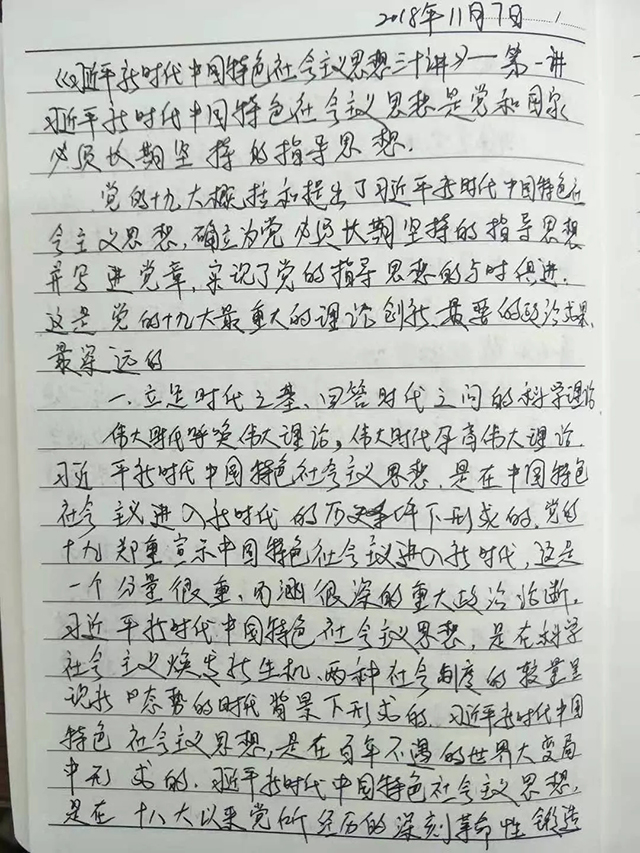 2018年11月7日
《习近平新时代中国特色社会主义思想三十讲》—第一讲
习近平新时代中国特色社会主义思想是党和国家
必须长期坚持的指导思想.
党的十九大概括和提出了习近平新时代中国特色社
会主义思想,确立为党必须长期坚持的指导思想
并写进党章,实现了党的指导思想的与时俱进.
这是党的十九大最重大的理论创新,最重要的政治成果,
最深远的
一.立足时代之基、回答时代之问的科学理论
伟大时代呼唤伟大理论,伟大时代孕育伟大理论.
习近平新时代中国特色社会主义思想,是在中国特色
社会主义进入新时代的历史条件下形成的.党的
十九郑重宣示中国特色社会主义进入新时代,这是
一个分量很重、内涵很深的重大政治论断.
习近平新时代中国特色社会主义思想,是在科学
社会主义焕发新生机、两种社会制度的较量呈
现新态势的时代背景下形成的.习近平新时代中国
特色社会主义思想,是在百年不遇的世界大变局
中形成的.习近平新时代中国特色社会主义思想,
是在十八大以来党所经历的深刻革命性锻造